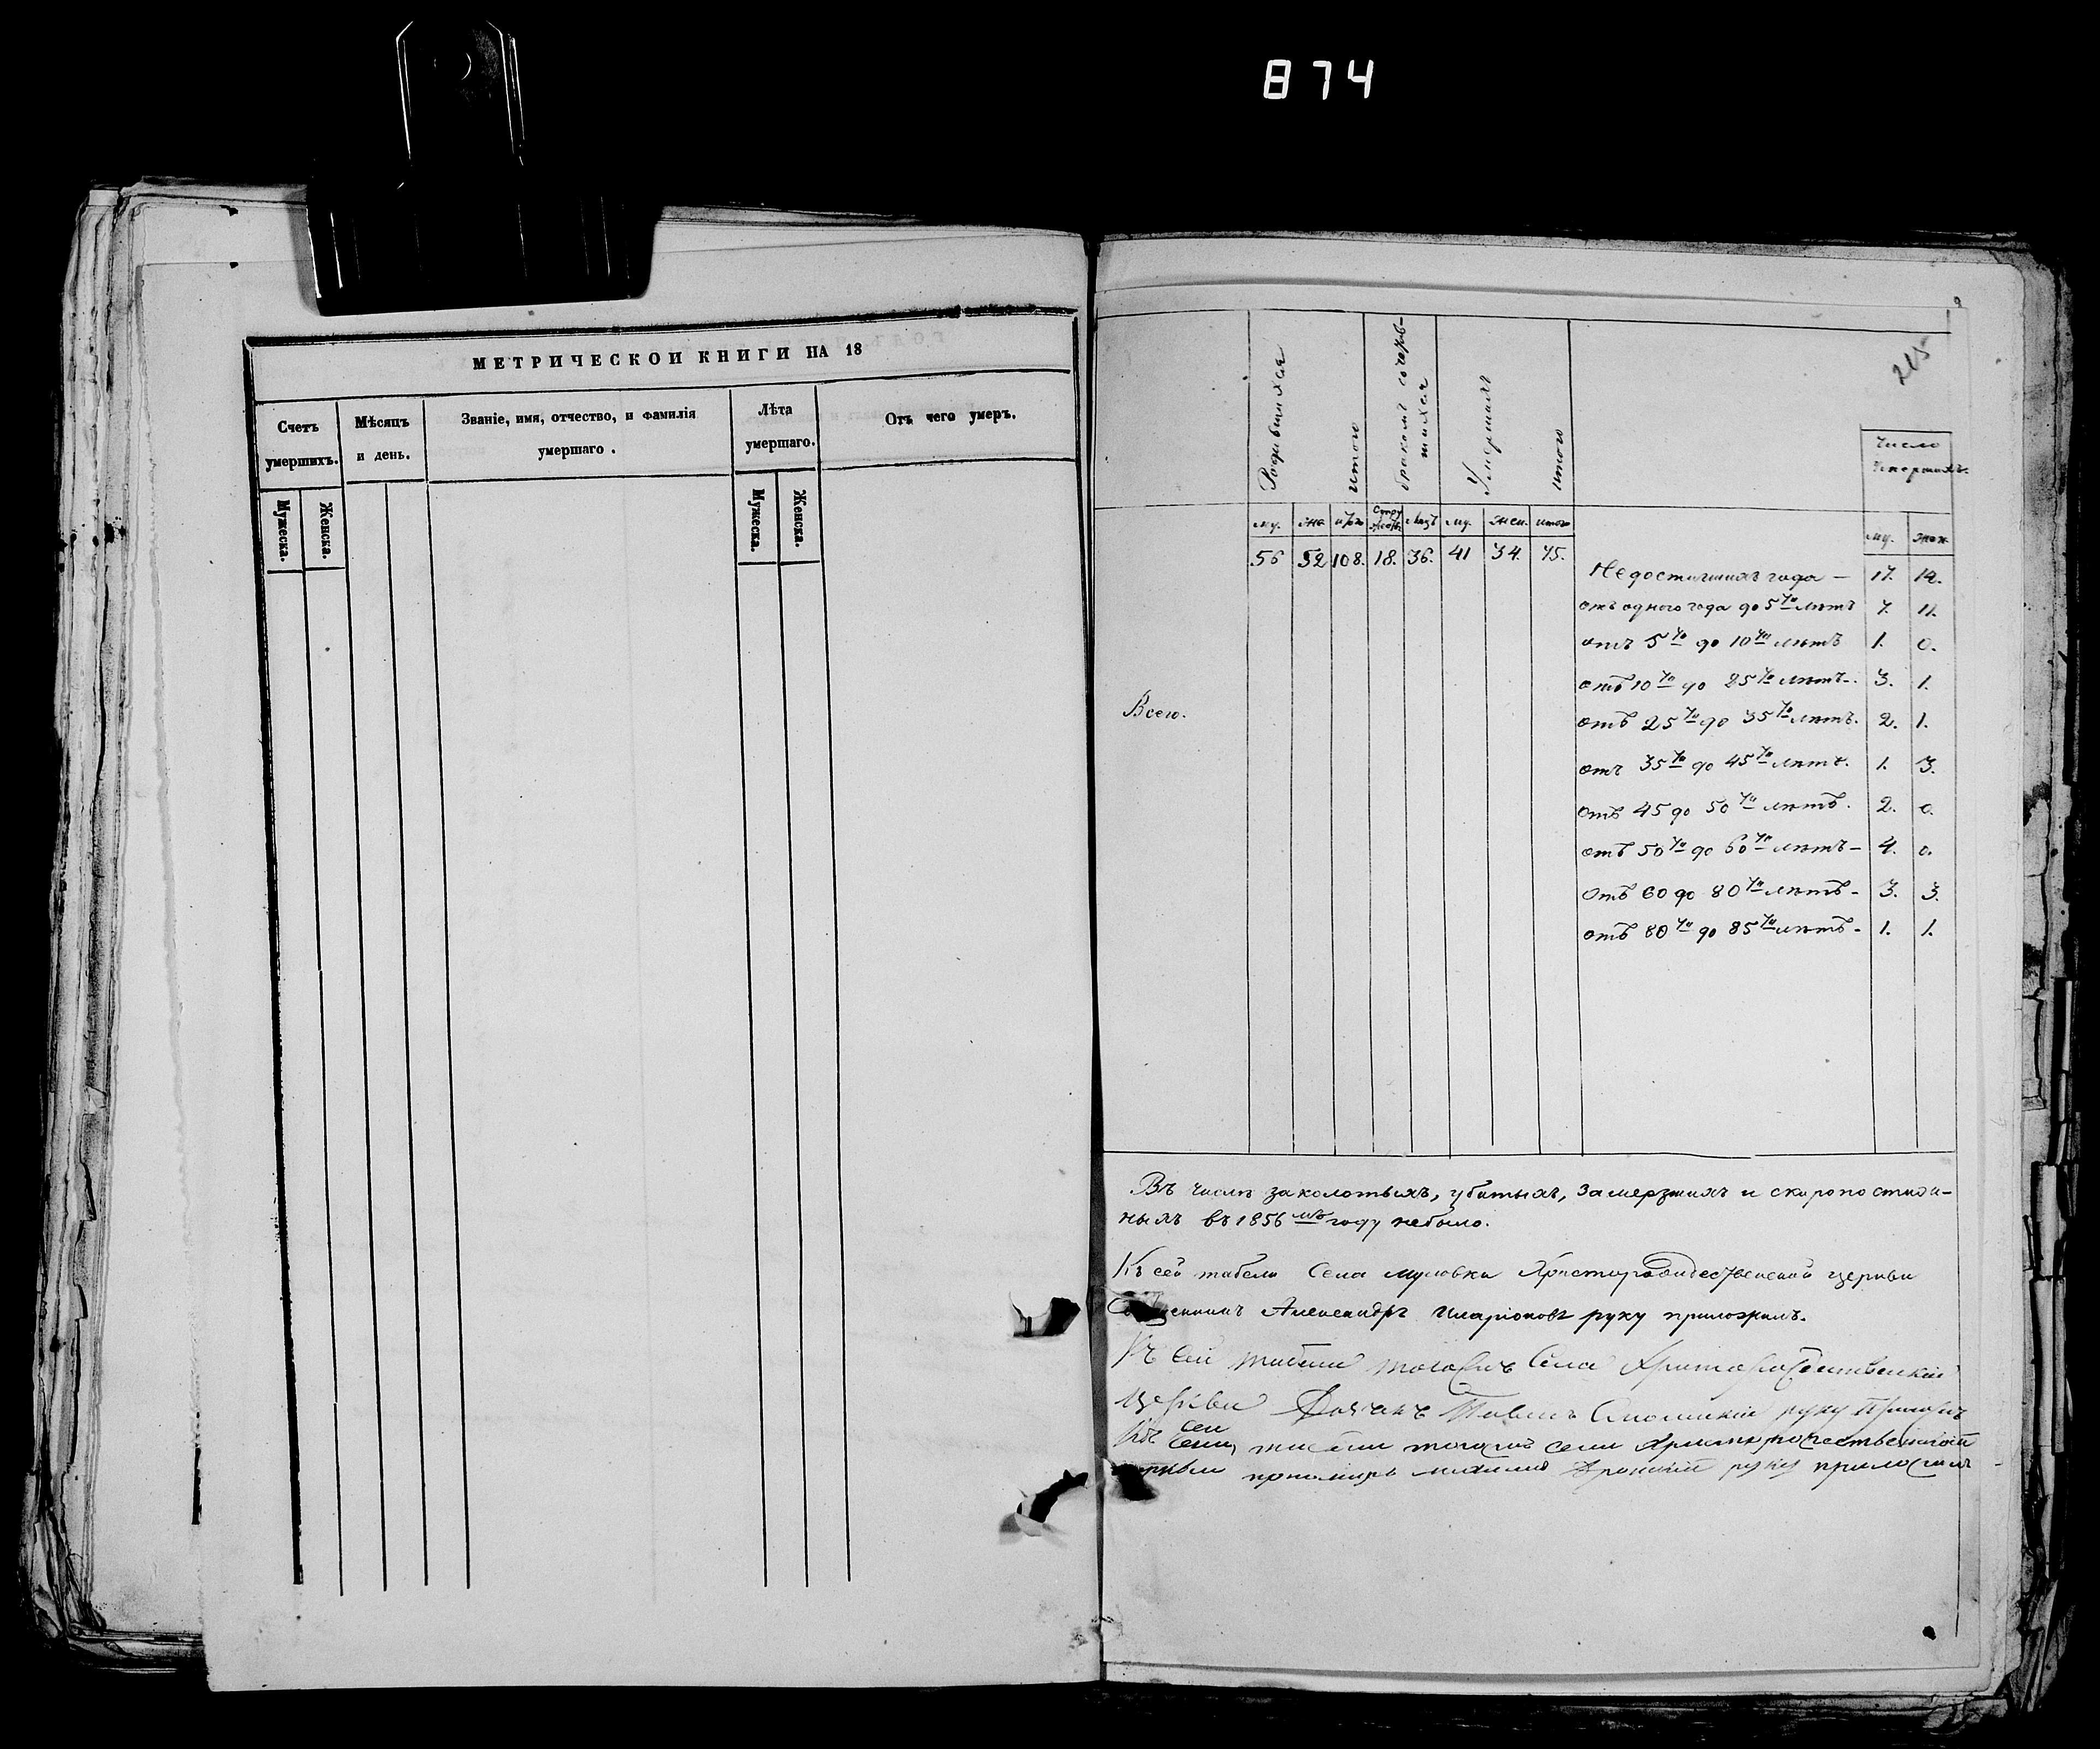 874
МЕТРИЧЕСКОЙ КНИГИ НА 18
Счетъ умершихъ.
Мѣсяцъ и день.
Званіе, имя, отчество, и фамилія умершаго.
Лѣта умершаго.
Отъ чего умеръ.
Мужеска. Женска.
Мужеска. Женска.
215
Родившихся итого бракомъ сочетавшихся Умершихъ итого
Число умершихъ.
му. итого му. жен. итого
му. жен.
56 52 108. 18. 36. 41 34. 75.
Всего.
Недостигшихъ года — 17. 14.
отъ одного года до 5ти лѣтъ 7. 11.
отъ 5ти до 10ти лѣтъ 1. 0.
отъ 10ти до 25ти лѣтъ. 3. 1.
отъ 25ти до 35ти лѣтъ. 2. 1.
отъ 35ти до 45ти лѣтъ. 1. 3.
отъ 45 до 50ти лѣтъ. 2. 0.
отъ 50ти до 60ти лѣтъ - 4. 0.
отъ 60 до 80ти лѣтъ - 3. 3.
отъ 80ти до 85ти лѣтъ - 1. 1.
Въ числѣ заколотыхъ, убитыхъ, замерзшихъ и скоропостиж-
ныхъ въ 1856мъ году небыло.
Къ сей табели Села Христорождественской церкви
Священникъ Александръ Иларіоновъ руку приложилъ.
Къ сей табели тогожъ Села Христорождественской
церкви Дьячекъ Павелъ руку приложилъ
Къ сей табели тогожъ села Христорождественской
церкви пономарь Михаилъ руку приложилъ